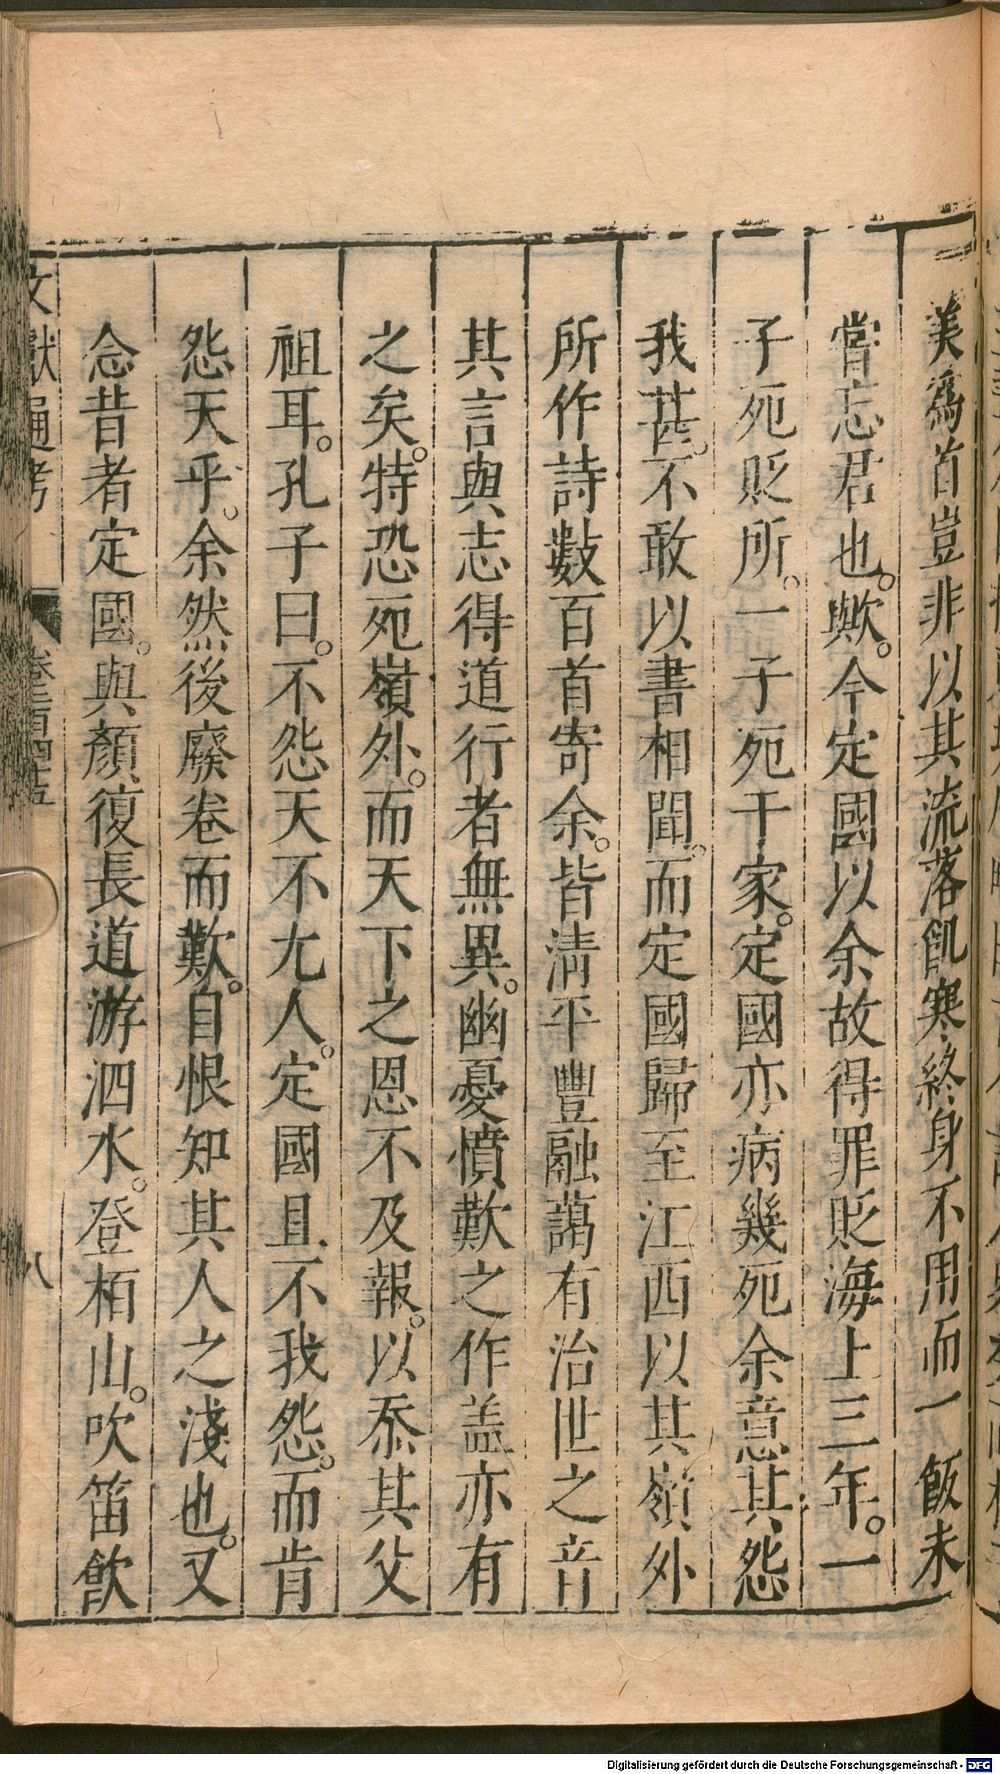 美爲首豈非以其流落飢寒終身不用而一飯未
嘗忘君也。歟。今定國以余故得罪貶海上三年。一
子死貶所。一子死于家。定國亦病幾死余意其怨
我甚。不敢以書相聞。而定國歸至江西以其嶺外
所作詩數百首寄余。皆淸平豐融藹有治世之音
其言與志得道行者無異。幽憂憤歎之作盖亦有
之矣。特恐死嶺外。而天下之恩不及報。以忝其父
祖耳。孔子曰。不怨天不尤人。定國且不我怨。而肯
怨天乎。余然後廢卷而歎。自恨知其人之淺也。又
念昔者定國。與顏復長道游泗水。登栢山。吹笛飮
文獻通考 卷二百四五 八
Digitalisierung gefördert durch die Deutsche Forschungsgemeinschaft - DFG